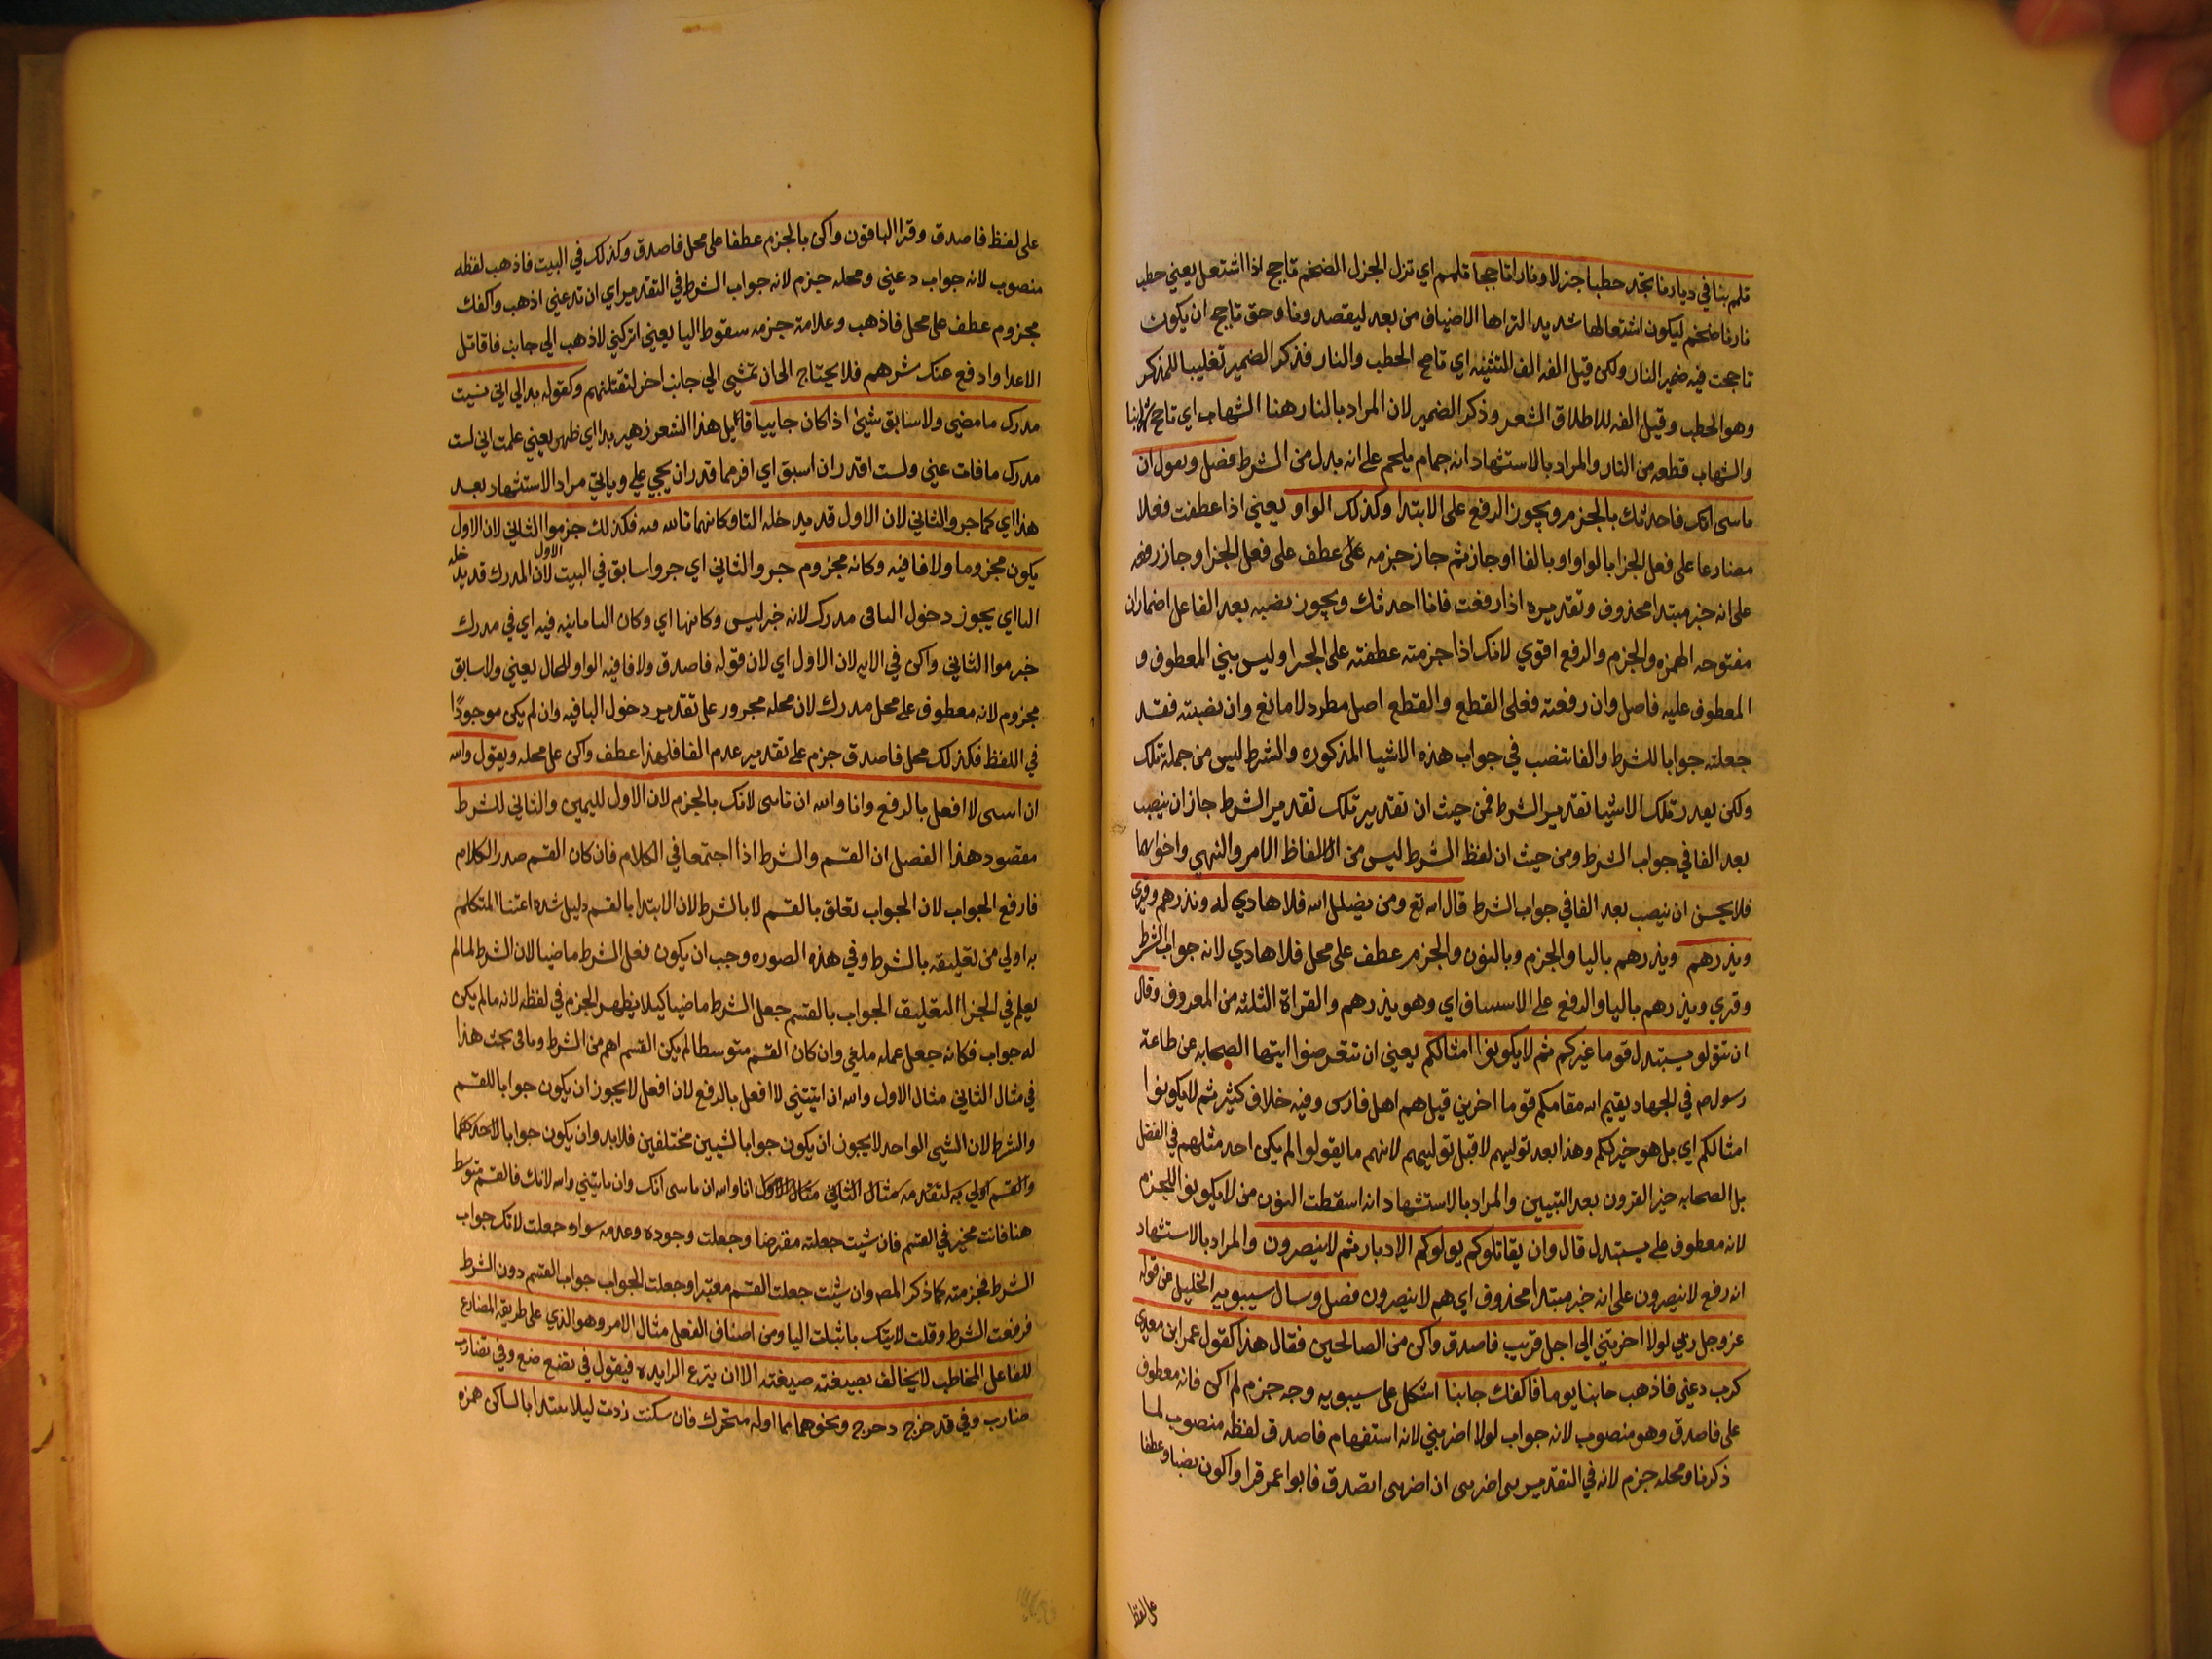 تلمم بنا في ديارنا تجد حطبا جزلا ونارا تاججا تلمم اي تنزل الجزل الضخم تاجج اذا اشتعل يعني حطب
نارنا ضخم ليكون اشتعالها شديدا لتراها الاضياف من بعد ليقصدونا وحق تاجج ان يكون
تاججت فيه ضمير النار ولكن قيل الفه الف التثنيه اي تاجج الحطب والنار فذكر الضمير تغليبا للمذكر
وهو الحطب وقيل الفه للاطلاق الشعر وذكر الضمير لان المراد بالنار هنا الشهاب اي تاجج
والشهاب قطعه من النار والمراد بالاستشهاد انه جزم يلمم على انه بدل من الشرط فصل ويقول ان
ماسى اتك فاحدثك بالجزم ويجوز الرفع على الابتدا وكذلك الواو يعني اذا عطفت فعلا
مضارعا على فعل الجزا بالواو او بالفا او جاز ثم جاز جزمه على عطف على فعل الجزا وجاز رفعه
على انه خبر مبتدا محذوف وتقديره اذا رفعت فانا احدثك ويجوز نصبه بعد الفا على اضمار ان
مفتوحه الهمزه والجزم والرفع اقوي لانك اذا جزمته عطفته على الجزا وليس بيني المعطوف و
المعطوف عليه فاصل وان رفعته فعلى القطع والقطع اصل مطرد لا مانع وان نصبته فقد
جعلته جوابا للشرط والفا تنصب في جواب هذه الاشيا المذكوره والشرط ليس من جمله تلك
ولكن بعد تلك الاشيا تقدير الشرط فمن حيث ان تقدير تلك تقدير الشرط جاز ان ينصب
بعد الفا في جواب الشرط ومن حيث ان لفظ الشرط ليس من الالفاظ الامر والنهي واخواتها
فلا يحسن ان ينصب بعد الفا في جواب الشرط قال الله تع ومن يضلل الله فلا هادي له ونذرهم وقري
ويذرهم ويذرهم باليا والجزم وبالنون والجزم عطف على محل فلا هادي لانه جواب الشرط
وقري ويذرهم باليا والرفع على الاستيناف اي وهو يذرهم والقراة الثلثه من المعروف وقال
ان تتولو يستبدل قوما غيركم ثم لا يكونوا امثالكم يعني ان تتعرضوا ايتها الصحابه عن طاعة
رسولهم في الجهاد يقيم الله مقامكم قوما اخرين قيل هم اهل فارس وفيه خلاف كثير ثم لا يكونوا
امثالكم اي بل هو خير لكم وهذا بعد توليهم لا قبل توليهم لانهم ما يقولوا لم يكن احد مثلهم في الفضل
بل الصحابه خير القرون بعد النبيين والمراد بالاستشهاد انه اسقطت النون من لا يكونوا للجزم
لانه معطوف على يستبدل قال وان يقاتلوكم يولوكم الادبار ثم لا ينصرون والمراد بالاستشهاد
انه رفع لا ينصرون على انه خبر مبتدا محذوف اي هم لا ينصرون فصل وسال سيبويه الخليل عن قوله
عز وجل ربي لولا اخرتني الي اجل قريب فاصدق واكن من الصالحين فقال هذا كقول عمر ابن معدي
كرب دعني فاذهب جانبا يوما فاكفك جانبا اشكل على سيبويه وجه جزم لم اكن فانه معطوف
على فاصدق وهو منصوب لانه جواب لولا اخرتني لانه استفهام فاصدق لفظه منصوب لما
ذكرنا ومحله جزم لانه في التقدير ان اخرتني اتصدق فابوا عمر قرا واكون نصبا وعطفا
على لفظ
على لفظ فاصدق وقرا الباقون واكن بالجزم عطفا على محل فاصدق وكذلك في البيت فاذهب لفظه
منصوب لانه جواب دعني ومحله جزم لانه جواب الشرط في التقدير اي ان تدعني اذهب واكفك
مجزوم عطف على محل فاذهب وعلامة جزمه سقوط اليا يعني اتركني لاذهب الي جانب فاقاتل
الاعدا وادفع عنك شرهم فلا يحتاج الى ان تمشي الي جانب اخر لتقتلهم وكقوله بدا لي اني نسيت
مدرك ما مضى ولا سابق شيئ اذا كان جاييا قائل هذا الشعر زهير بدا اي ظهر يعني علمت اني لست
مدرك ما فات عني ولست اقدر ان اسبق اي افر مما قدر ان يجي علي وياتي مراد الاستشهاد بعد
هذا اي كما جروا الثاني لان الاول قد يدخله البا وكانها ثابته فيه فكذلك جزموا الثاني لان الاول
يكون مجزوما ولا فا فيه وكانه مجزوم جروا الثاني اي جروا سابق في البيت لان الاول المدرك قد يدخله
البا اي يجوز دخول البا في مدرك لانه خبر ليس وكانها اي وكان البا ثابته فيه اي في مدرك
جزموا الثاني واكن في الايه لان الاول اي لان قوله فاصدق ولا فا فيه الواو للحال يعني ولا سابق
مجزوم لانه معطوف على محل مدرك لان محله مجرور على تقدير دخول البا فيه وان لم يكن موجودًا
في اللفظ فكذلك محل فاصدق جزم على تقدير عدم الفا فلهذا عطف واكن على محله ويقول والله
ان اتيتني لا افعل بالرفع وانا والله ان تاتني لا اتك بالجزم لان الاول لليمين والثاني للشرط
مقصود هذا الفصل ان القسم والشرط اذا اجتمعا في الكلام فان كان القسم صدر الكلام
فارفع الجواب لان الجواب تعلق بالقسم لا بالشرط لان الابتدا بالقسم دليل شده اعتنا المتكلم
به اولي من تعليقه بالشرط وفي هذه الصوره وجب ان يكون فعل الشرط ماضيا لان الشرط لما لم
يعلم في الجزا التعليق الجواب بالقسم جعل الشرط ماضيا كيلا يظهر الجزم في لفظه لانه ما لم يكن
له جواب فكانه جعل عمله ملغي وان كان القسم متوسطا لم يكن القسم اهم من الشرط وما في بحث هذا
في مثال الثاني مثال الاول والله ان اتيتني لا افعل بالرفع لان افعل لا يجوز ان يكون جوابا للقسم
والشرط لان الشيى الواحد لا يجون ان يكون جوابا لشيين مختلفين فلا بد وان يكون جوابا لاحدهما
والقسم اولي به لتقدمه مثال الثاني انا والله ان تاتني لا اتك وان تاتيني والله لا اتك فالقسم متوسط
هنا فانت مخير في القسم فان شيت جعلته مفترضا وجعلت وجوده وعدمه سوا وجعلت لا اتك جواب
الشرط فجزمته كما ذكر المص وان شيت جعلت القسم معتبرا وجعلت الجواب جواب القسم دون الشرط
فرفعت الشرط وقلت لا يتك باثبات اليا ومن اصناف الفعل مثال الامر وهو الذي على طريقه المضارع
للفاعل المخاطب لا يخالف بصيغته صيغته الا ان ينزع الزايده فيقول في تضع ضع وفي تضارب
ضارب وفي تدحرج دحرج ونحوهما مما اوله متحرك فان سكنت زدت ليلا تبتدا بالساكن همزه